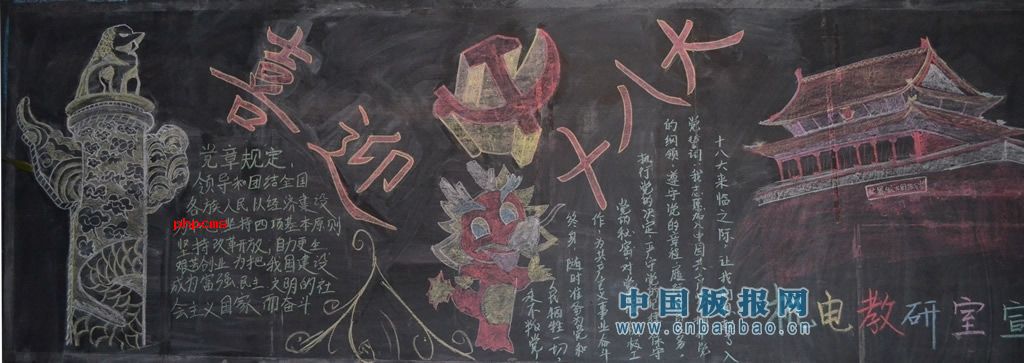 喜迎十八大
党章规定,
领导和团结全国
各族人民以经济建设
phpcms坚持四项基本原则
坚持改革开放,自力更生
艰苦创业为把我国建设
成为富强民主文明的社
会主义国家而奋斗
十八大来临之际,让我
党誓词:我志愿加入中国共
的纲领,遵守党的章程,履
执行党的决定,严
党的秘密,对党
作,为共产主义事业奋斗
终身,随时准备为党和
人民牺牲一切
永不叛党
中国板报网
www.cnbanbao.cn
电教研室宣